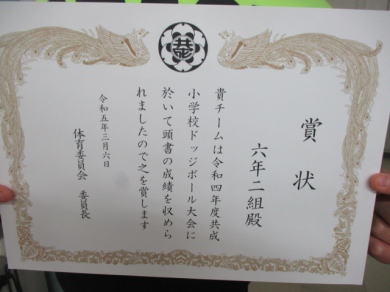 賞状
六年二組殿
貴チームは令和四年度共成
小学校ドッジボール大会に
於いて頭書の成績を収めら
れましたので之を賞します
令和五年三月六日
体育委員会 委員長